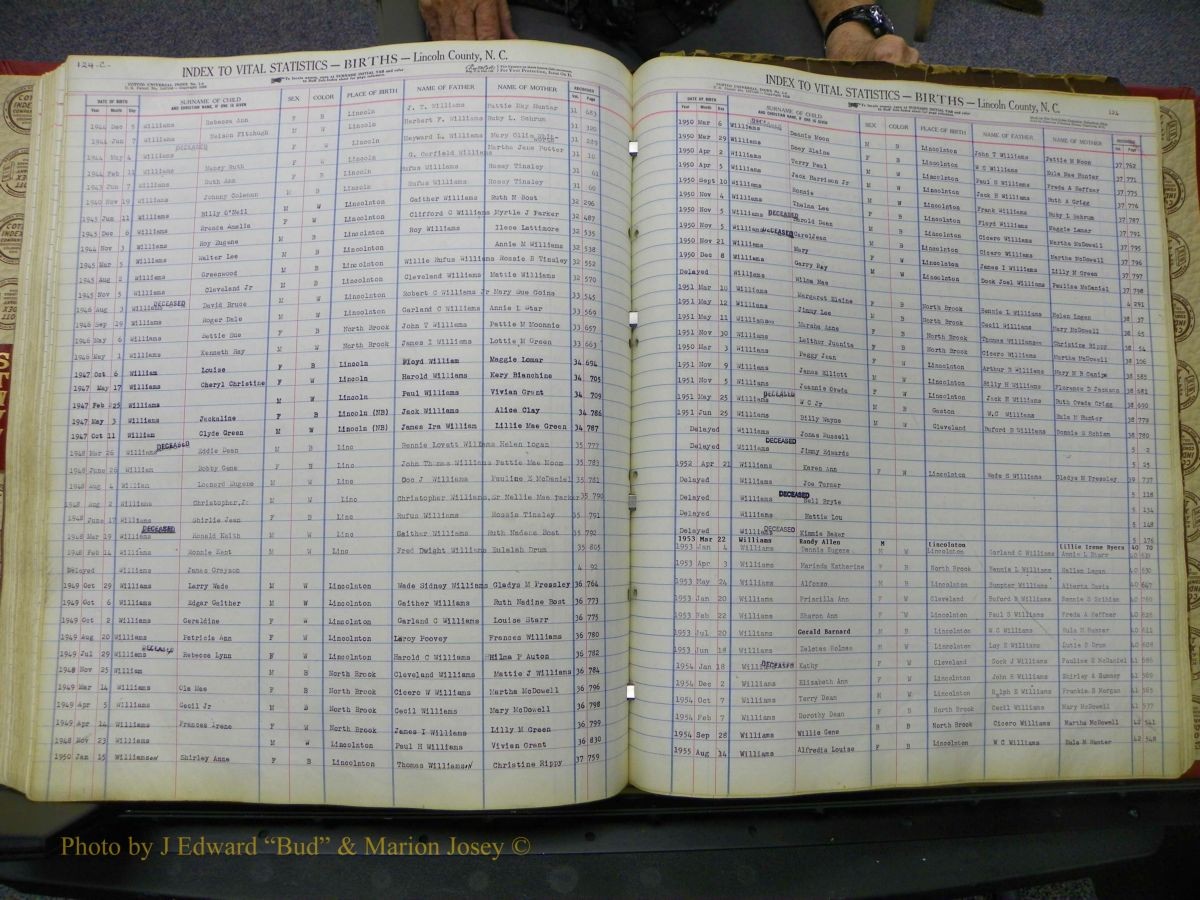 124-C-
INDEX TO VITAL STATISTICS — BIRTHS — Lincoln County, N. C.
DATE OF BIRTH
Year Month Day
SURNAME OF CHILD
AND CHRISTIAN NAME, IF ONE IS GIVEN
SEX COLOR PLACE OF BIRTH NAME OF FATHER NAME OF MOTHER
RECORDED
Vol. Page
1944 Dec 5 Williams Rebecca Ann F B Lincoln J. T. Williams Pattie May Hunter 31 683
1944 Jun 7 Williams Nelson Fitzhugh M W Lincoln Herbert F. Williams Ruby L. Sehrum
1944 May 4 Williams DECEASED Lincoln Hayward L. Williams Mary Olin
1944 Feb 11 Williams Mamey Ruth Lincoln G. Garfield Williams Martha Jane Putter 31 10
1943 Jun 7 Williams Ruth Ann Lincoln Rufus Williams Rossy Tinsley 31 61
1940 Nov 19 Williams Johnny Colemon Lincolnton Rufus Williams Rossy Tinsley 31 60
1945 Jun 11 Williams Billy O'Neil M W Lincolnton Gaither Williams Ruth N Bost 32 296
1945 Dec 6 Williams Brenda Amelia F W Lincolnton Clifford C Williams Myrtle J Parker 32 487
1944 Nov 3 Williams Roy Eugene Lincolnton Roy Williams Ilene Lattimore 32 535
1945 Mar 5 Williams Walter Lee M B Lincolnton Annie M Williams 32 538
1945 Aug 2 Williams Greenwood M W Lincolnton Willie Rufus Williams Rossie B Tinsley 32 552
1945 Nov 5 Williams Cleveland Jr M B Lincolnton Cleveland Williams Mattie Williams 32 570
1946 Aug 3 Williams DECEASED David Bruce M W Lincolnton Robert C Williams Jr Mary Sue Goins 33 545
1946 Sep 19 Williams Roger Dale M W Lincolnton Garland C Williams Annie L Star 33 569
1946 May 6 Williams Bettie Sue F B North Brook John T Williams Pattie M Moonnie 33 657
1946 May 1 Williams Kenneth Ray M W North Brook James I Williams Lottie M Green 33 663
1947 Oct 6 William Louise F B Lincoln Floyd William Maggie Lomar 34 694
1947 May 17 Williams Cheryl Christine F W Lincoln Harold Williams Kery Blanchine 34 705
1947 Feb 25 Williams M W Lincoln Paul Williams Vivian Grant 34 709
1947 May 3 Williams Jackaline F B Lincoln (NB) Jack Williams Alice Clay 34 786
1947 Oct 11 William Clyde Green M W Lincoln (NB) James Ira William Lillie Mae Green 34 787
1948 Mar 26 Williams DECEASED Eddie Dean M B Linc Bennie Lovett Williams Helen Logan 35 777
1948 June 26 William Bobby Gene F B Linc John Thomas Williams Pattie Mae Noon 35 783
1948 Aug 4 William Leonard Eugene M W Linc Doc J Williams Pauline E McDaniel 35 781
1948 Aug 2 Williams Christopher,Jr. M W Linc Christopher Williams,Sr Nellie Mae Parker 35 790
1948 June 17 Williams Shirlie Jean F B Linc Rufus Williams Rossie Tinsley 35 791
1948 Mar 19 Williams DECEASED Ronald Keith M W Linc Gaither Williams Ruth Nadene Bost 35 792
1948 Feb 14 Williams Ronnie Kent M W Linc Fred Dwight Williams Eulalah Drum 35 805
Delayed Williams James Grayson 4 92
1949 Oct 29 Williams Larry Wade M W Lincolnton Wade Sidney Williams Gladys M Pressley 36 764
1949 Oct 6 Williams Edgar Gaither M W Lincolnton Gaither Williams Ruth Nadine Bost 36 773
1949 Oct 2 Williams Geraldine F W Lincolnton Garland C Williams Louise Starr 36 775
1949 Aug 20 Williams Patricia Ann F W Lincolnton Laroy Poovey Frances Williams 36 780
1949 Jul 29 Williams DECEASED Rebecca Lynn F W Lincolnton Harold C Williams Hilma P Auton 36 782
1948 Nov 25 William M B North Brook Cleveland Williams Mattie J Williams 36 784
1949 Mar 14 Williams Ola Mae F B North Brook Cicero W Williams Martha McDowell 36 796
1949 Apr 5 Williams Cecil Jr M B North Brook Cecil Williams Mary McDowell 36 798
1949 Apr 14 Williams Frances Arene F W North Brook James I Williams Lilly M Green 36 799
1948 Nov 23 Williams M W Lincolnton Paul H Williams Vivien Grant 36 830
1950 Jan 15 Williamson Shirley Anne F B Lincolnton Thomas Williamson Christine Rippy 37 759
INDEX TO VITAL STATISTICS — BIRTHS — Lincoln County, N. C.
124
DATE OF BIRTH
Year Month Day
SURNAME OF CHILD
AND CHRISTIAN NAME, IF ONE IS GIVEN
SEX COLOR PLACE OF BIRTH NAME OF FATHER NAME OF MOTHER
1950 Mar 6 Williams DECEASED Dennis Moon M B Lincolnton John T Williams Pattie M Moon 37 762
1950 Mar 29 Williams Docy Elaine F B Lincolnton W C Williams Eula Mae Hunter 37 771
1950 Apr 2 Williams Terry Paul M W Lincolnton Paul S Williams Freda A Heffner 37 775
1950 Apr 5 Williams Jack Harrison Jr M W Lincolnton Jack H Williams Ruth A Grigg 37 776
1950 Sept 10 Williams Ronnie Lincolnton Frank Williams Ruby L Sehrum 37 787
1950 Nov 4 Williams Thelma Lee F B Lincolnton Floyd Williams Maggie Lamar 37 791
1950 Nov 5 Williams DECEASED Harold Dean Lincolnton Cicero Williams Martha McDowell 37 795
1950 Nov 5 Williams DECEASED CarolJean Lincolnton Cicero Williams Martha McDowell 37 796
1950 Nov 21 Williams Mary F W Lincolnton James I Williams Lilly M Green 37 797
1950 Dec 8 Williams Garry Ray M W Lincolnton Dock Joel Williams Pauline McDaniel 37 798
Delayed Williams Wilma Mae 4 291
1951 Mar 10 Williams Margaret Elaine F B North Brook Bennie L Williams Helen Logan 38 37
1951 May 12 Williams Jimmy Lee M B North Brook Cecil Williams Mary McDowell 38 45
1951 May 11 Williamson Marsha Anne F B North Brook Thomas Williamson Christine Rippy 38 54
1951 Nov 30 Williams Leithur Juanita F B North Brook Cicero Williams Martha McDowell 38 106
1950 Mar 3 Williams Peggy Jean F W Lincolnton Arthur D Williams Mary M B Canipe 38 585
1951 Nov 9 Williams James Elliott M W Lincolnton Billy H Williams Florence D Jackson 38 681
1951 Nov 5 Williams Joannie Oveda F W Lincolnton Jack H Williams Ruth Oveda Grigg 38 690
1951 May 25 Williams DECEASED W C Jr M B Gaston W.C Williams Eula M Hunter 38 778
1951 Jun 25 Williams Billy Wayne M W Cleveland Buford B Williams Bonnie S Schism 38 780
Delayed Williams Jonas Russell 5 2
Delayed Williams DECEASED Jimmy Edwards 5 25
1952 Apr 21 Williams Karen Ann F W Lincolnton Wade S Williams Gladys M Pressley 39 737
Delayed Williams Joe Turner 5 118
Delayed Williams DECEASED Bell Bryte 5 134
Delayed Williams Mottie Lou 5 148
Delayed Williams DECEASED Kimmie Baker 5 176
1953 Mar 22 Williams Randy Allen M Lincolnton Lillie Irene Byers 40 70
1953 Jan 4 Williams Dennis Eugene M W Lincolnton Garland C Williams Annie L Starr 40 619
1953 Apr 3 Williams Marinda Katherine F B North Brook Bennie L Williams Hellen Logan 40 630
1953 May 24 Williams Alfonso M B Lincolnton Sumpter Williams Alberta Davis 40 647
1953 Jan 20 Williams Priscilla Ann F W Cleveland Buford B Williams Bonnie S Schism 40 760
1953 Feb 22 Williams Sharon Ann F W Lincolnton Paul S Williams Freda A Heffner 40 626
1953 Jul 20 Williams Gerald Barnard M B Lincolnton W C Williams Eula M Hunter 40 611
1953 Jun 18 Williams Delotes Holmes M W Lincolnton Loy E Williams Lucie B Drum 40 608
1954 Jan 18 Williams DECEASED Kathy F W Cleveland Dock J Williams Pauline E McDaniel 41 586
1954 Dec 2 Williams Elizabeth Ann F W Lincolnton John H Williams Shirley A Gunney 41 589
1954 Oct 7 Williams Terry Dean M W Lincolnton Ralph E Williams Frankie S Morgan 41 585
1954 Feb 7 Williams Dorothy Dean F B North Brook Cecil Williams Mary McDowell 41 537
1954 Sep 28 Williams Willie Gene B B North Brook Cicero Williams Martha McDowell 42 541
1955 Aug 14 Williams Alfredia Louise F B Lincolnton W C Williams Eula M Hunter 42 548
Photo by J Edward “Bud” & Marion Josey ©